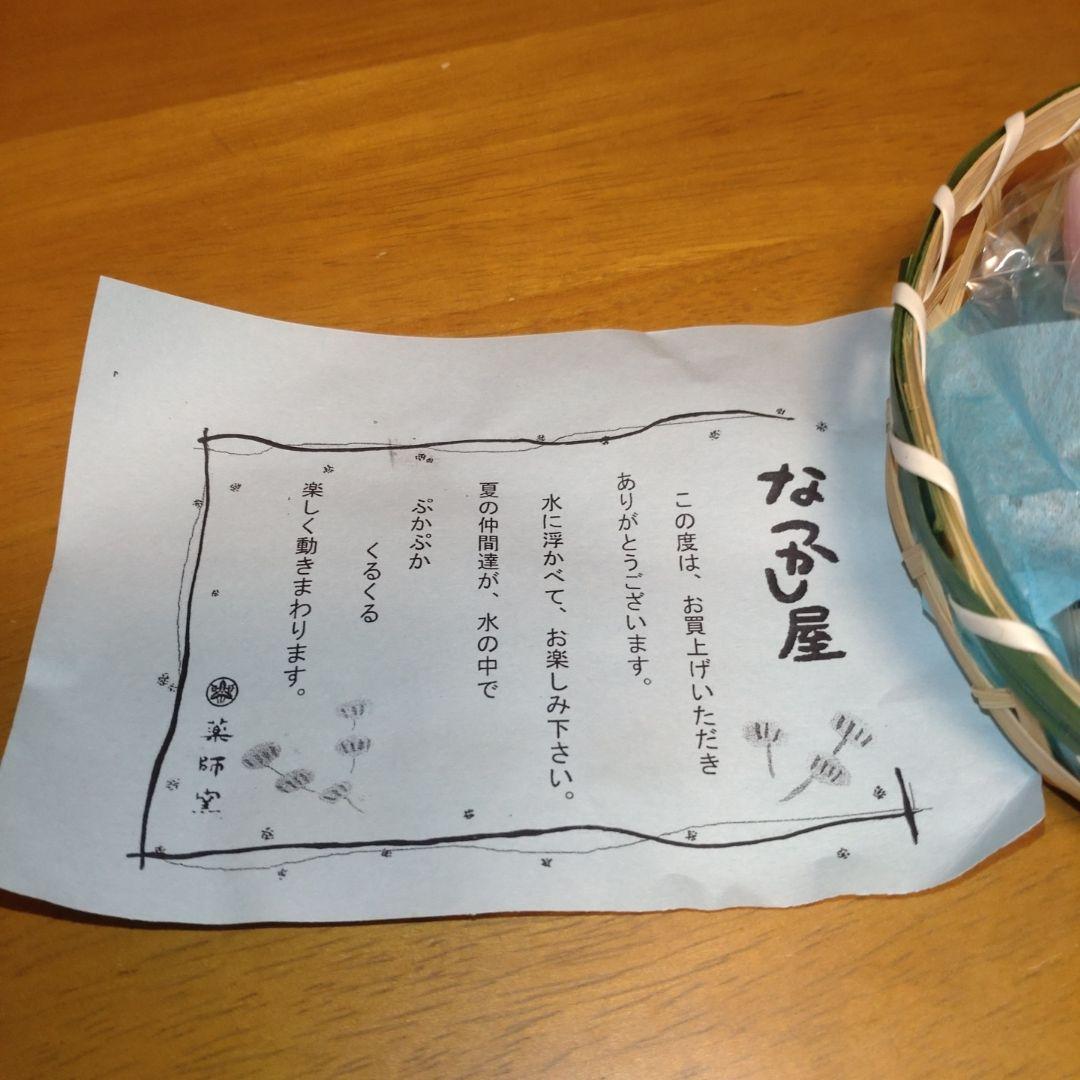 なつかし屋
この度は、お買上げいただき
ありがとうございます。
水に浮かべて、お楽しみ下さい。
夏の仲間達が、水の中で
ぷかぷか
くるくる
楽しく動きまわります。
薬師窯